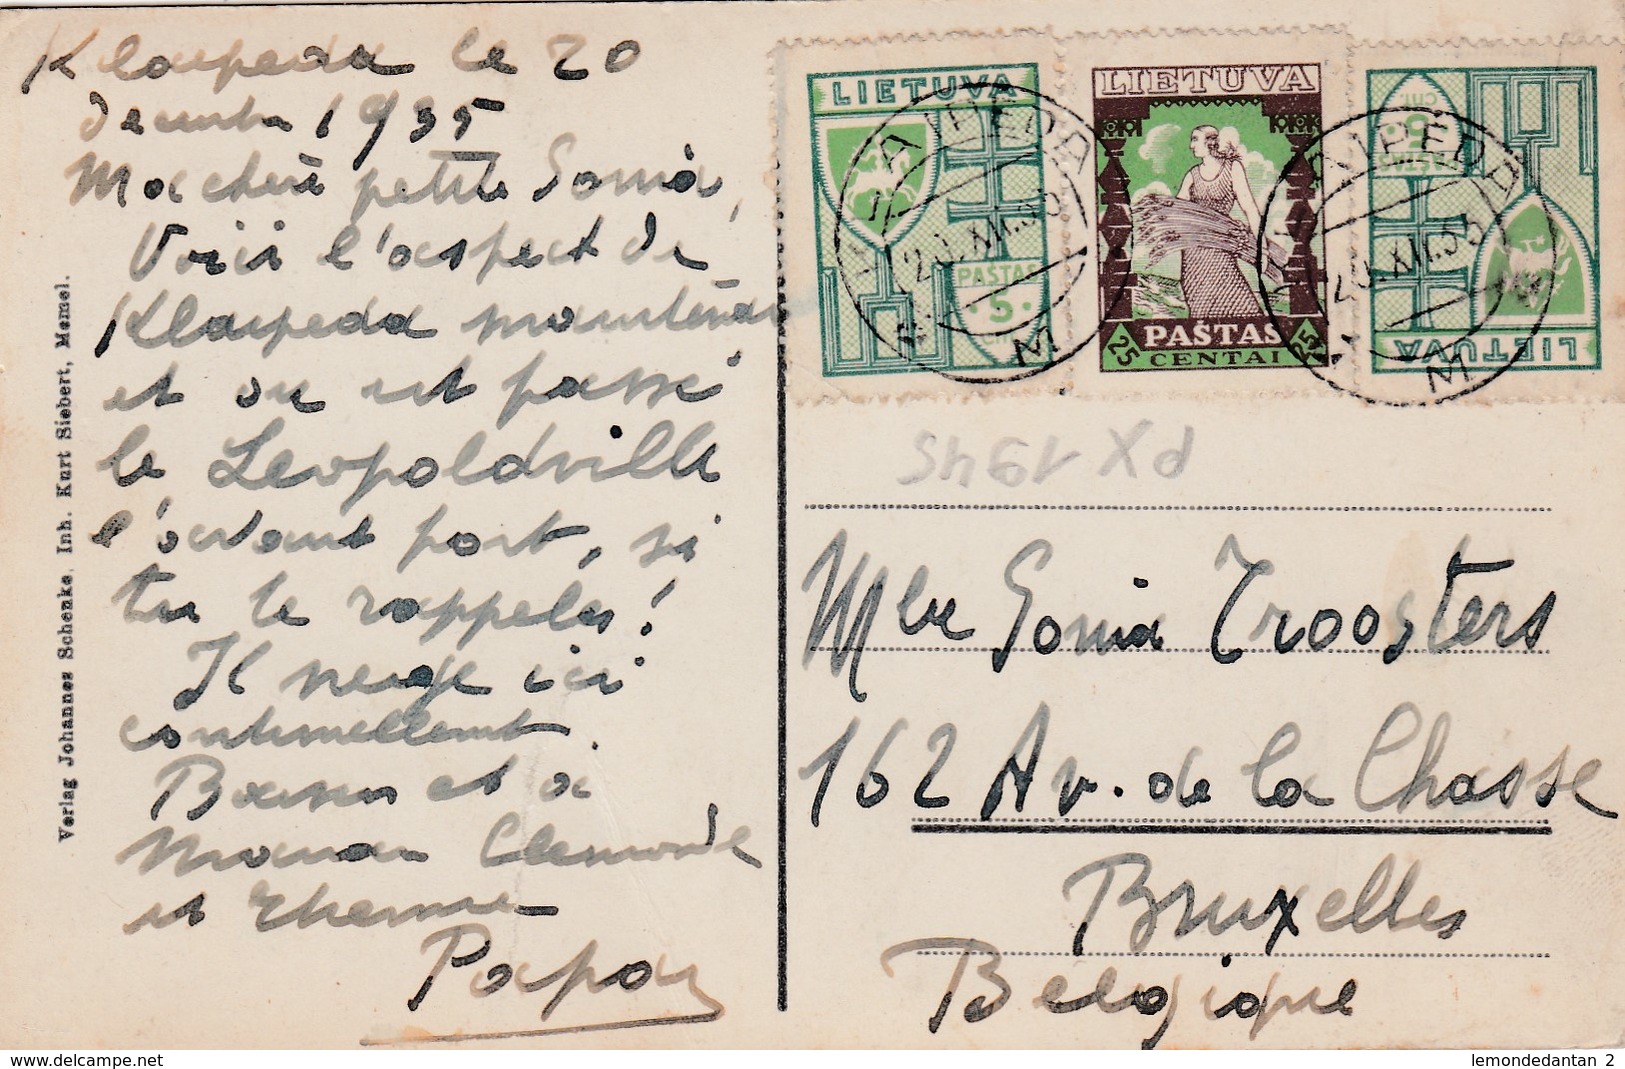 Klaipeda le 20
décembre 1935
Ma chère petite Sonia,
Voici l'aspect de
Klaipeda maintenant
et où est passé
le Léopoldville
l'avant port, si
tu te rappelles!
Il neige ici
continuellement.
Baisers et à
maman Clémonde
et
Papa
Verlag Johannes Schenke. Inh. Kurt Siebert, Memel.
LIETUVA
PAŠTAS
5
CNT.
LIETUVA
PAŠTAS
25 CENTAI 25
LIETUVA
PAŠTAS
5
CNT.
KLAIPEDA
20.XII.35
M
KLAIPEDA
20.XII.35
M
PX 1945
Mlle Sonia Troosters
162 Av. de la Chasse
Bruxelles
Belgique
www.delcampe.net
lemondedantan 2